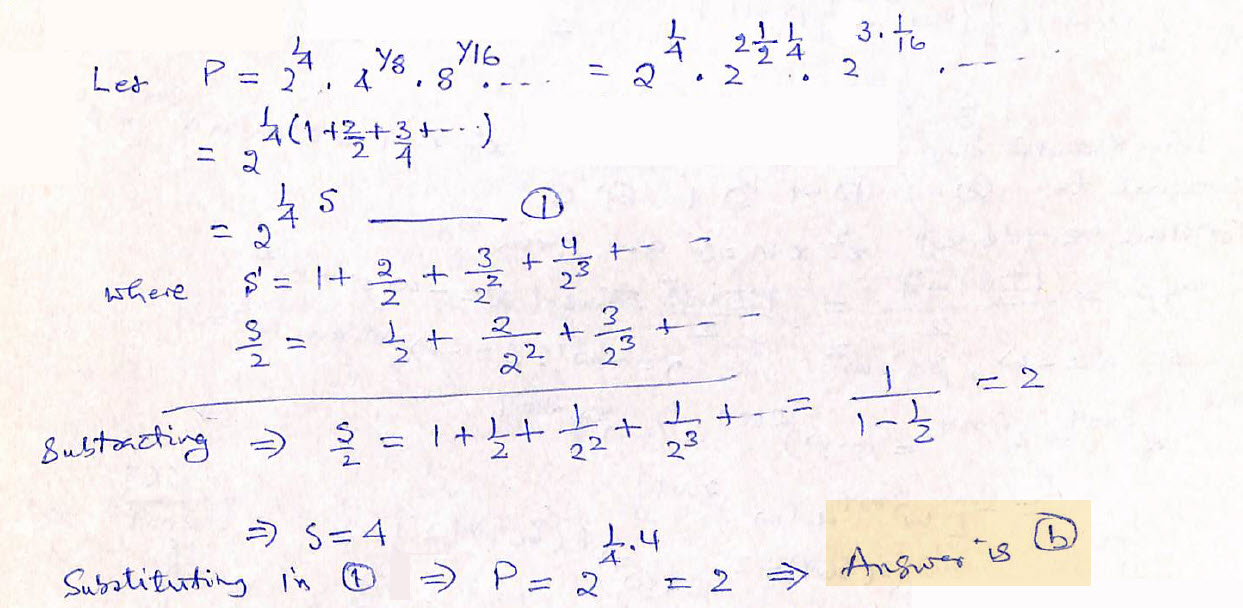 Let P = 2^{1/4} . 4^{1/8} . 8^{1/16} . --- = 2^{1/4} . 2^{2 \frac{1}{2} \frac{1}{4}} . 2^{3 . \frac{1}{16}} . ----
= 2^{\frac{1}{4}(1 + \frac{2}{2} + \frac{3}{4} + ---)}
= 2^{\frac{1}{4} S} ——— ①
where S = 1 + \frac{2}{2} + \frac{3}{2^2} + \frac{4}{2^3} + - -
\frac{S}{2} = \frac{1}{2} + \frac{2}{2^2} + \frac{3}{2^3} + - -
Subtracting ⇒ \frac{S}{2} = 1 + \frac{1}{2} + \frac{1}{2^2} + \frac{1}{2^3} + -- = \frac{1}{1 - \frac{1}{2}} = 2
⇒ S = 4
Substituting in ① ⇒ P = 2^{\frac{1}{4} . 4} = 2 ⇒ Answer is ⓑ